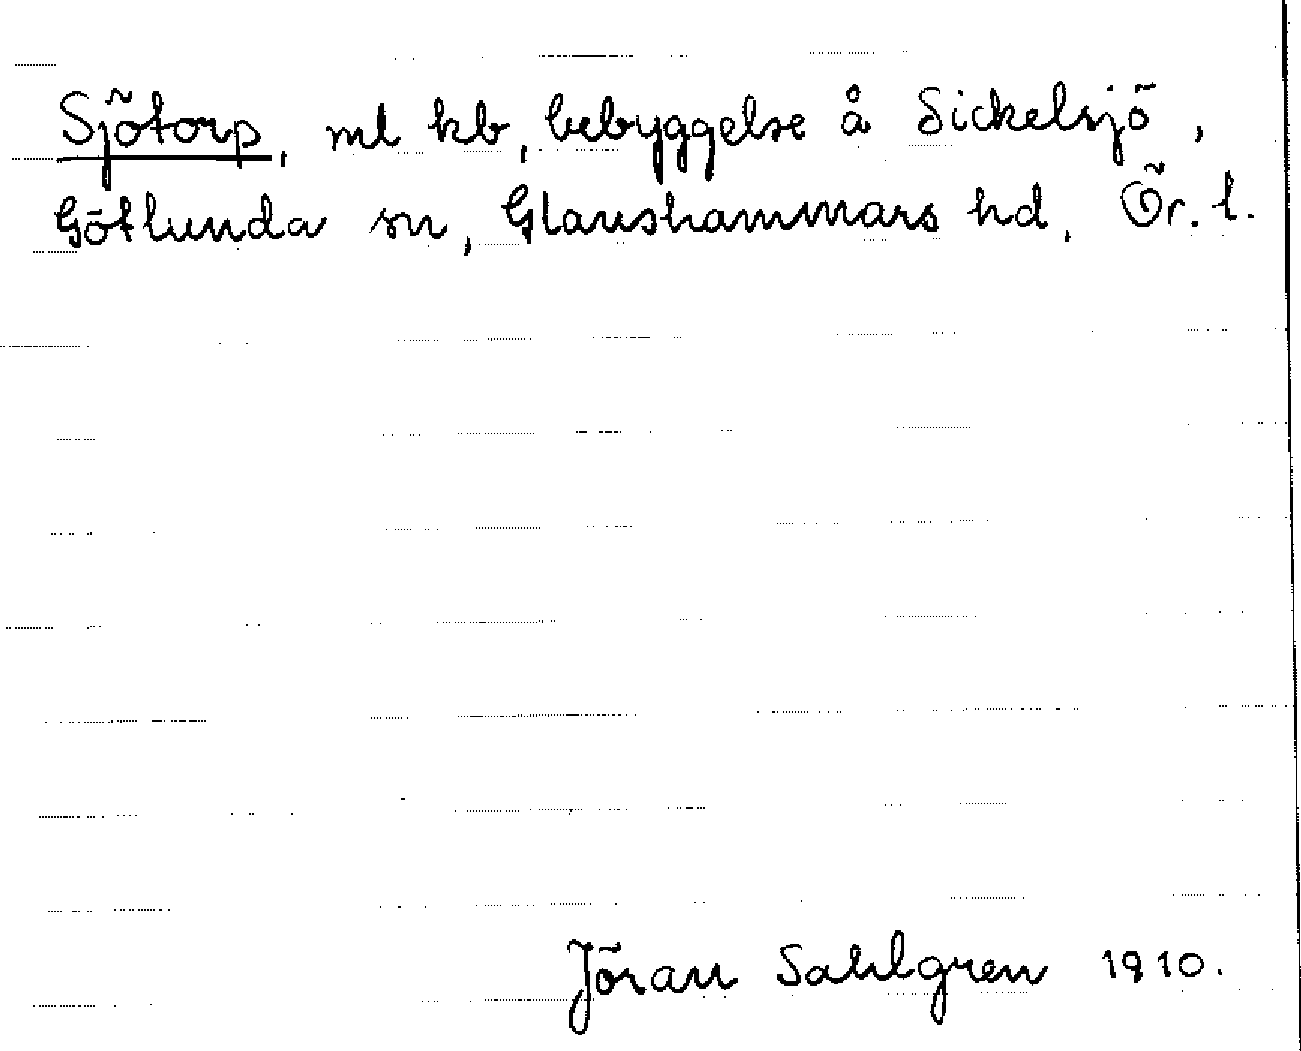 Sjötorp, ml kb, bebyggelse å Sickelsjö,
Götlunda sn, Glanshammars hd, Ör. l.
Jöran Sahlgren 1910.